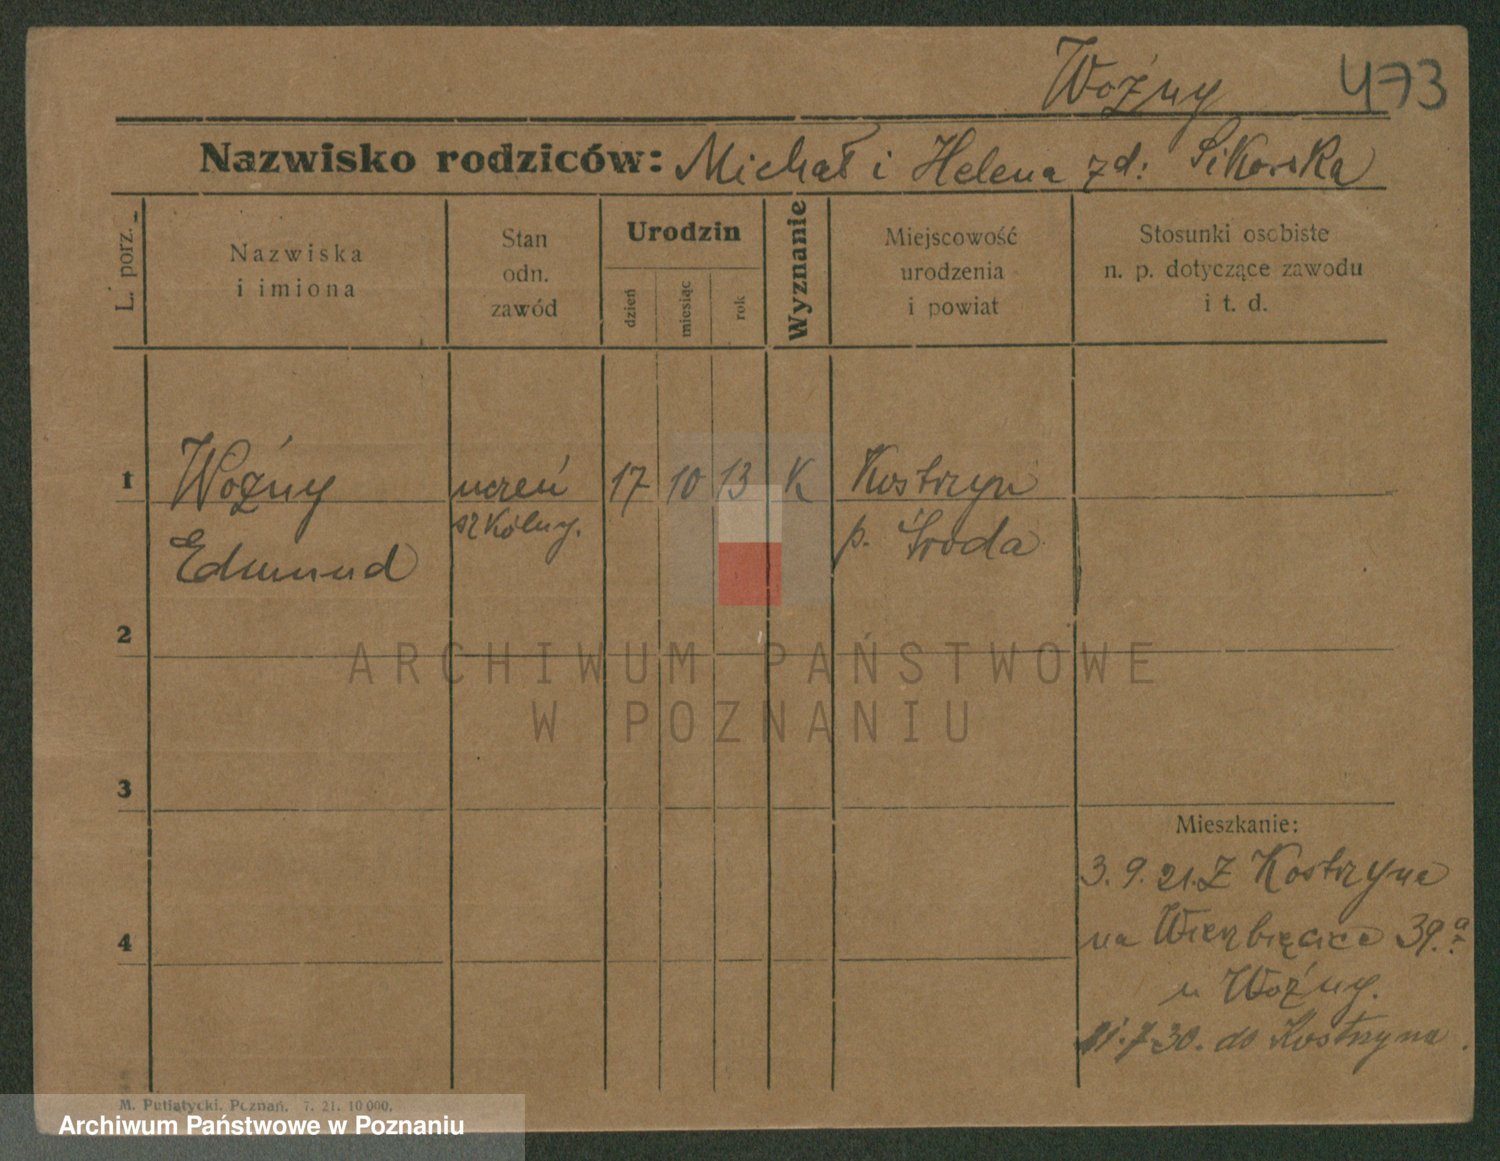 Woźny 473
Nazwisko rodziców: Michał i Helena zd: Sikorska
L. porz.
Nazwiska
i imiona
Stan
odn.
zawód
Urodzin
dzień
miesiąc
rok
Wyznanie
Miejscowość
urodzenia
i powiat
Stosunki osobiste
n. p. dotyczące zawodu
i t. d.
1 Woźny uczeń 17 10 13 K Kostrzyn
szkólny. p. Środa
Edmund
2
ARCHIWUM PAŃSTWOWE
W POZNANIU
3
Mieszkanie:
3. 9. 21. Z Kostrzyna
4
na Wierzbięcice 39.a
u Woźny.
11.7.30. do Kostrzyna.
M. Putiatycki, Poznań. 7. 21. 10 000.
Archiwum Państwowe w Poznaniu